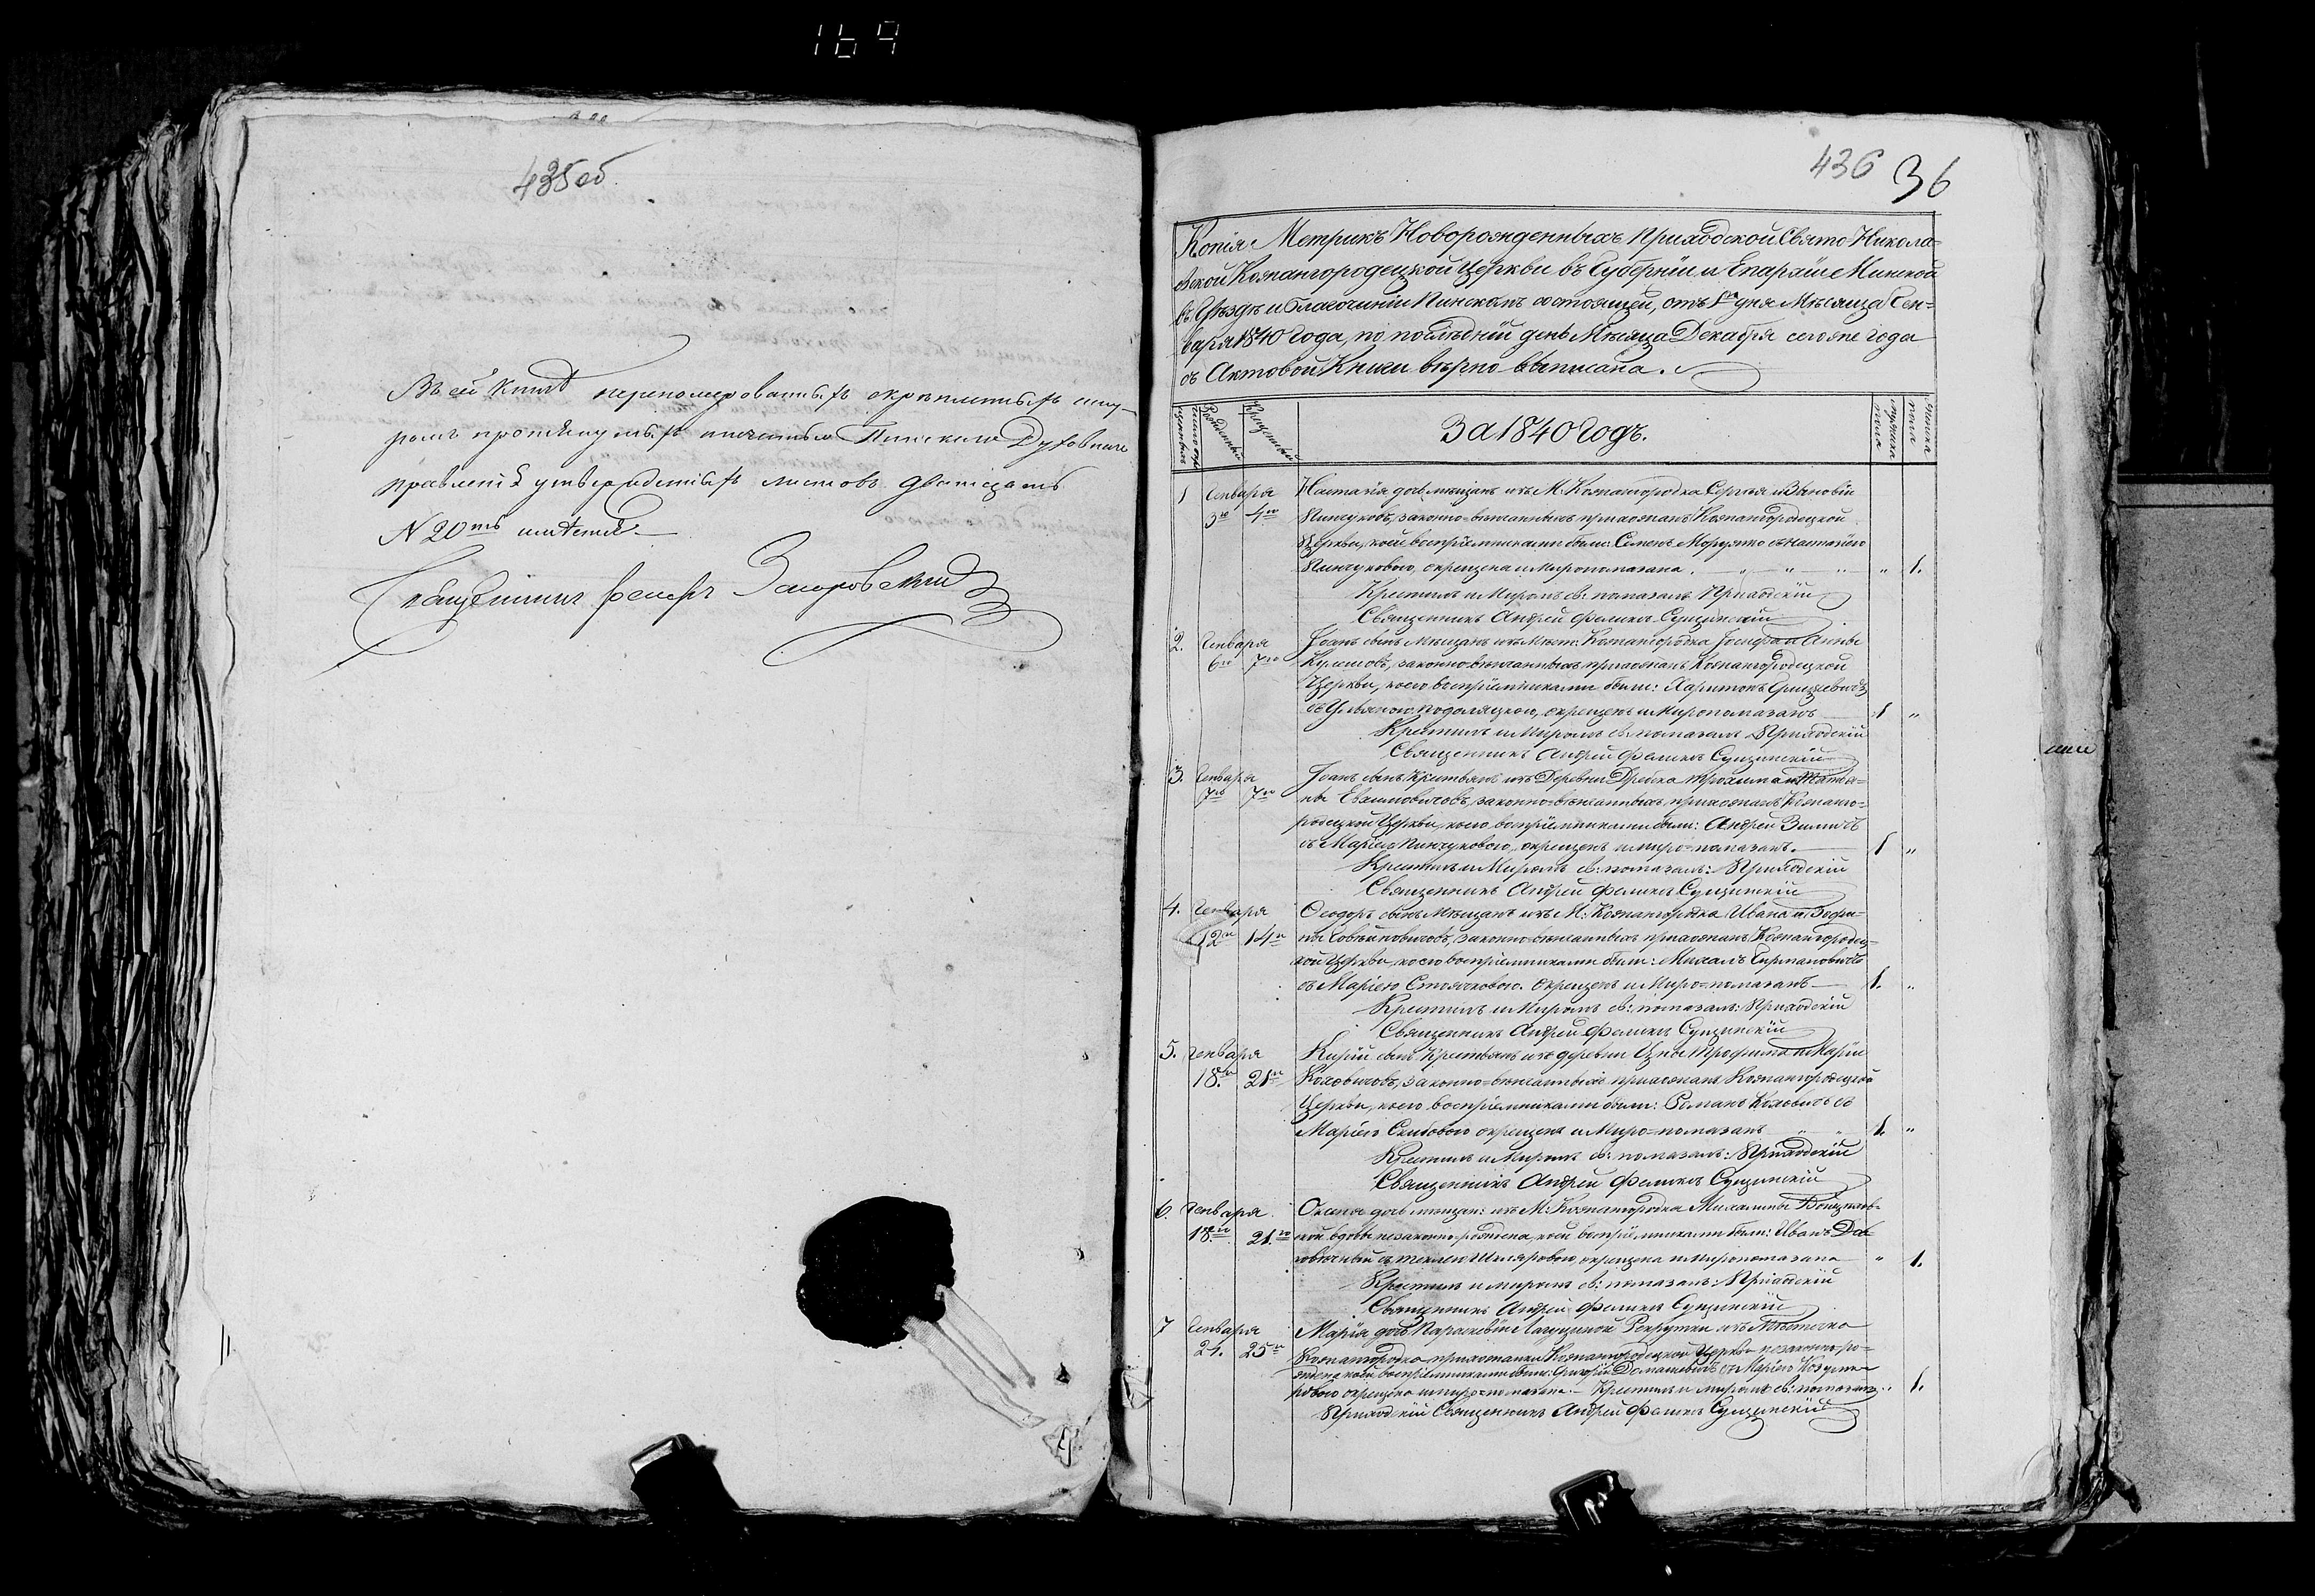 169
435об
Въ сей книгѣ перенумерованныхъ скрѣпленныхъ шну-
ромъ протянутыхъ печатью Пинскаго Духовнаго
правленія утвержденныхъ листовъ двадцать
N 20ть
Священникъ
436 36
Копія Метрикъ Новорожденныхъ Приходской Свято Никола-
евской Кожангородецкой Церкви въ Губерніи и Епархіи Минской
въ Уѣздѣ и благочиніи Пинскомъ состоящей, отъ 1го дня Мѣсяца Ген-
варя 1840 года, по послѣдній день Мѣсяца Декабря сегоже года
съ Актовой Книги вѣрно выписана.
За 1840 Годъ.
мужеска пола
женска пола
1 Генваря 3го 4го Настасія дочь мѣщанъ изъ М. Кожангородка Сергѣя и Зѣновіи
Пинчуковъ, законно-вѣнчанныхъ прихожанъ Кожангородецкой
Церкви, коей воспріемниками были: Семенъ Моружко съ Настасіею
Пинчуковою, окрещена и Миропомазана. " 1.
Крестилъ и Миромъ св: помазалъ Приходскій
Священникъ Андрей Фаліевъ Сущинскій
2. Генваря 6го 7го Іоанъ сынъ Мѣщанъ изъ Мѣст: Кожангородка Іосифа и Анны
Кулешовъ, законно вѣнчанныхъ прихожанъ Кожангородецкой
Церкви, коего воспріемниками были: Харитонъ Грицкевичъ
съ Ульяною Подоляцкою, окрещенъ и Миропомазанъ 1 "
Крестилъ и Миромъ св: помазалъ Приходскій
Священникъ Андрей Фаліевъ Сущинскій
3. Генваря 7го 7го Іоанъ сынъ Крестьянъ изъ Деревни Дребска Трохима и Татья-
ны Евхимовичовъ, законно-вѣнчанныхъ прихожанъ Кожанго-
родецкой Церкви, коего воспріемниками были: Андрей Зиничъ
съ Маріею Пинчуковою, окрещенъ и миро-помазанъ. 1 "
Крестилъ и Миромъ св: помазалъ: Приходскій
Священникъ Андрей Фаліевъ Сущинскій
4. Генваря 12го 14го Ѳеодоръ сынъ Мѣщанъ изъ М: Кожангородка Ивана и Зофи-
ны законно-вѣнчанныхъ прихожанъ Кожангородец-
кой Церкви, коего воспріемниками были: Михалъ
съ Маріею окрещенъ и Миро-помазанъ 1. "
Крестилъ и Миромъ св: помазалъ: Приходскій
Священникъ Андрей Фаліевъ Сущинскій
5. Генваря 18го 21го Кирій сынъ Крестьянъ изъ деревни Цны Трофима и Маріи
Коховичовъ, законно-вѣнчанныхъ прихожанъ Кожангородецкой
Церкви, коего воспріемниками были: Романъ Коховичъ съ
Маріею окрещенъ и Миро-помазанъ 1. "
Крестилъ и Миромъ св: помазалъ: Приходскій
Священникъ Андрей Фаліевъ Сущинскій
6. Генваря 18го 21го Оксеня дочь мѣщан: изъ М: Кожангородка Михалины
вдовы незаконно-рожденна, коей воспріемниками были: Иванъ
съ Теклею окрещена и Миропомазана " 1.
Крестилъ и миромъ св: помазалъ: Приходскій
Священникъ Андрей Фаліевъ Сущинскій
7 Генваря 21. 25го Марія дочь Параскевіи Рекрутки изъ Мѣстечка
Кожангородка прихожанки Кожангородецкой Церкви незаконно-ро-
жденна коей воспріемниками были: Григорій Домашевичъ съ Маріею
окрещена и миро-помазана. Крестилъ и миромъ св: помазалъ " 1.
Приходскій Священникъ Андрей Фаліевъ Сущинскій